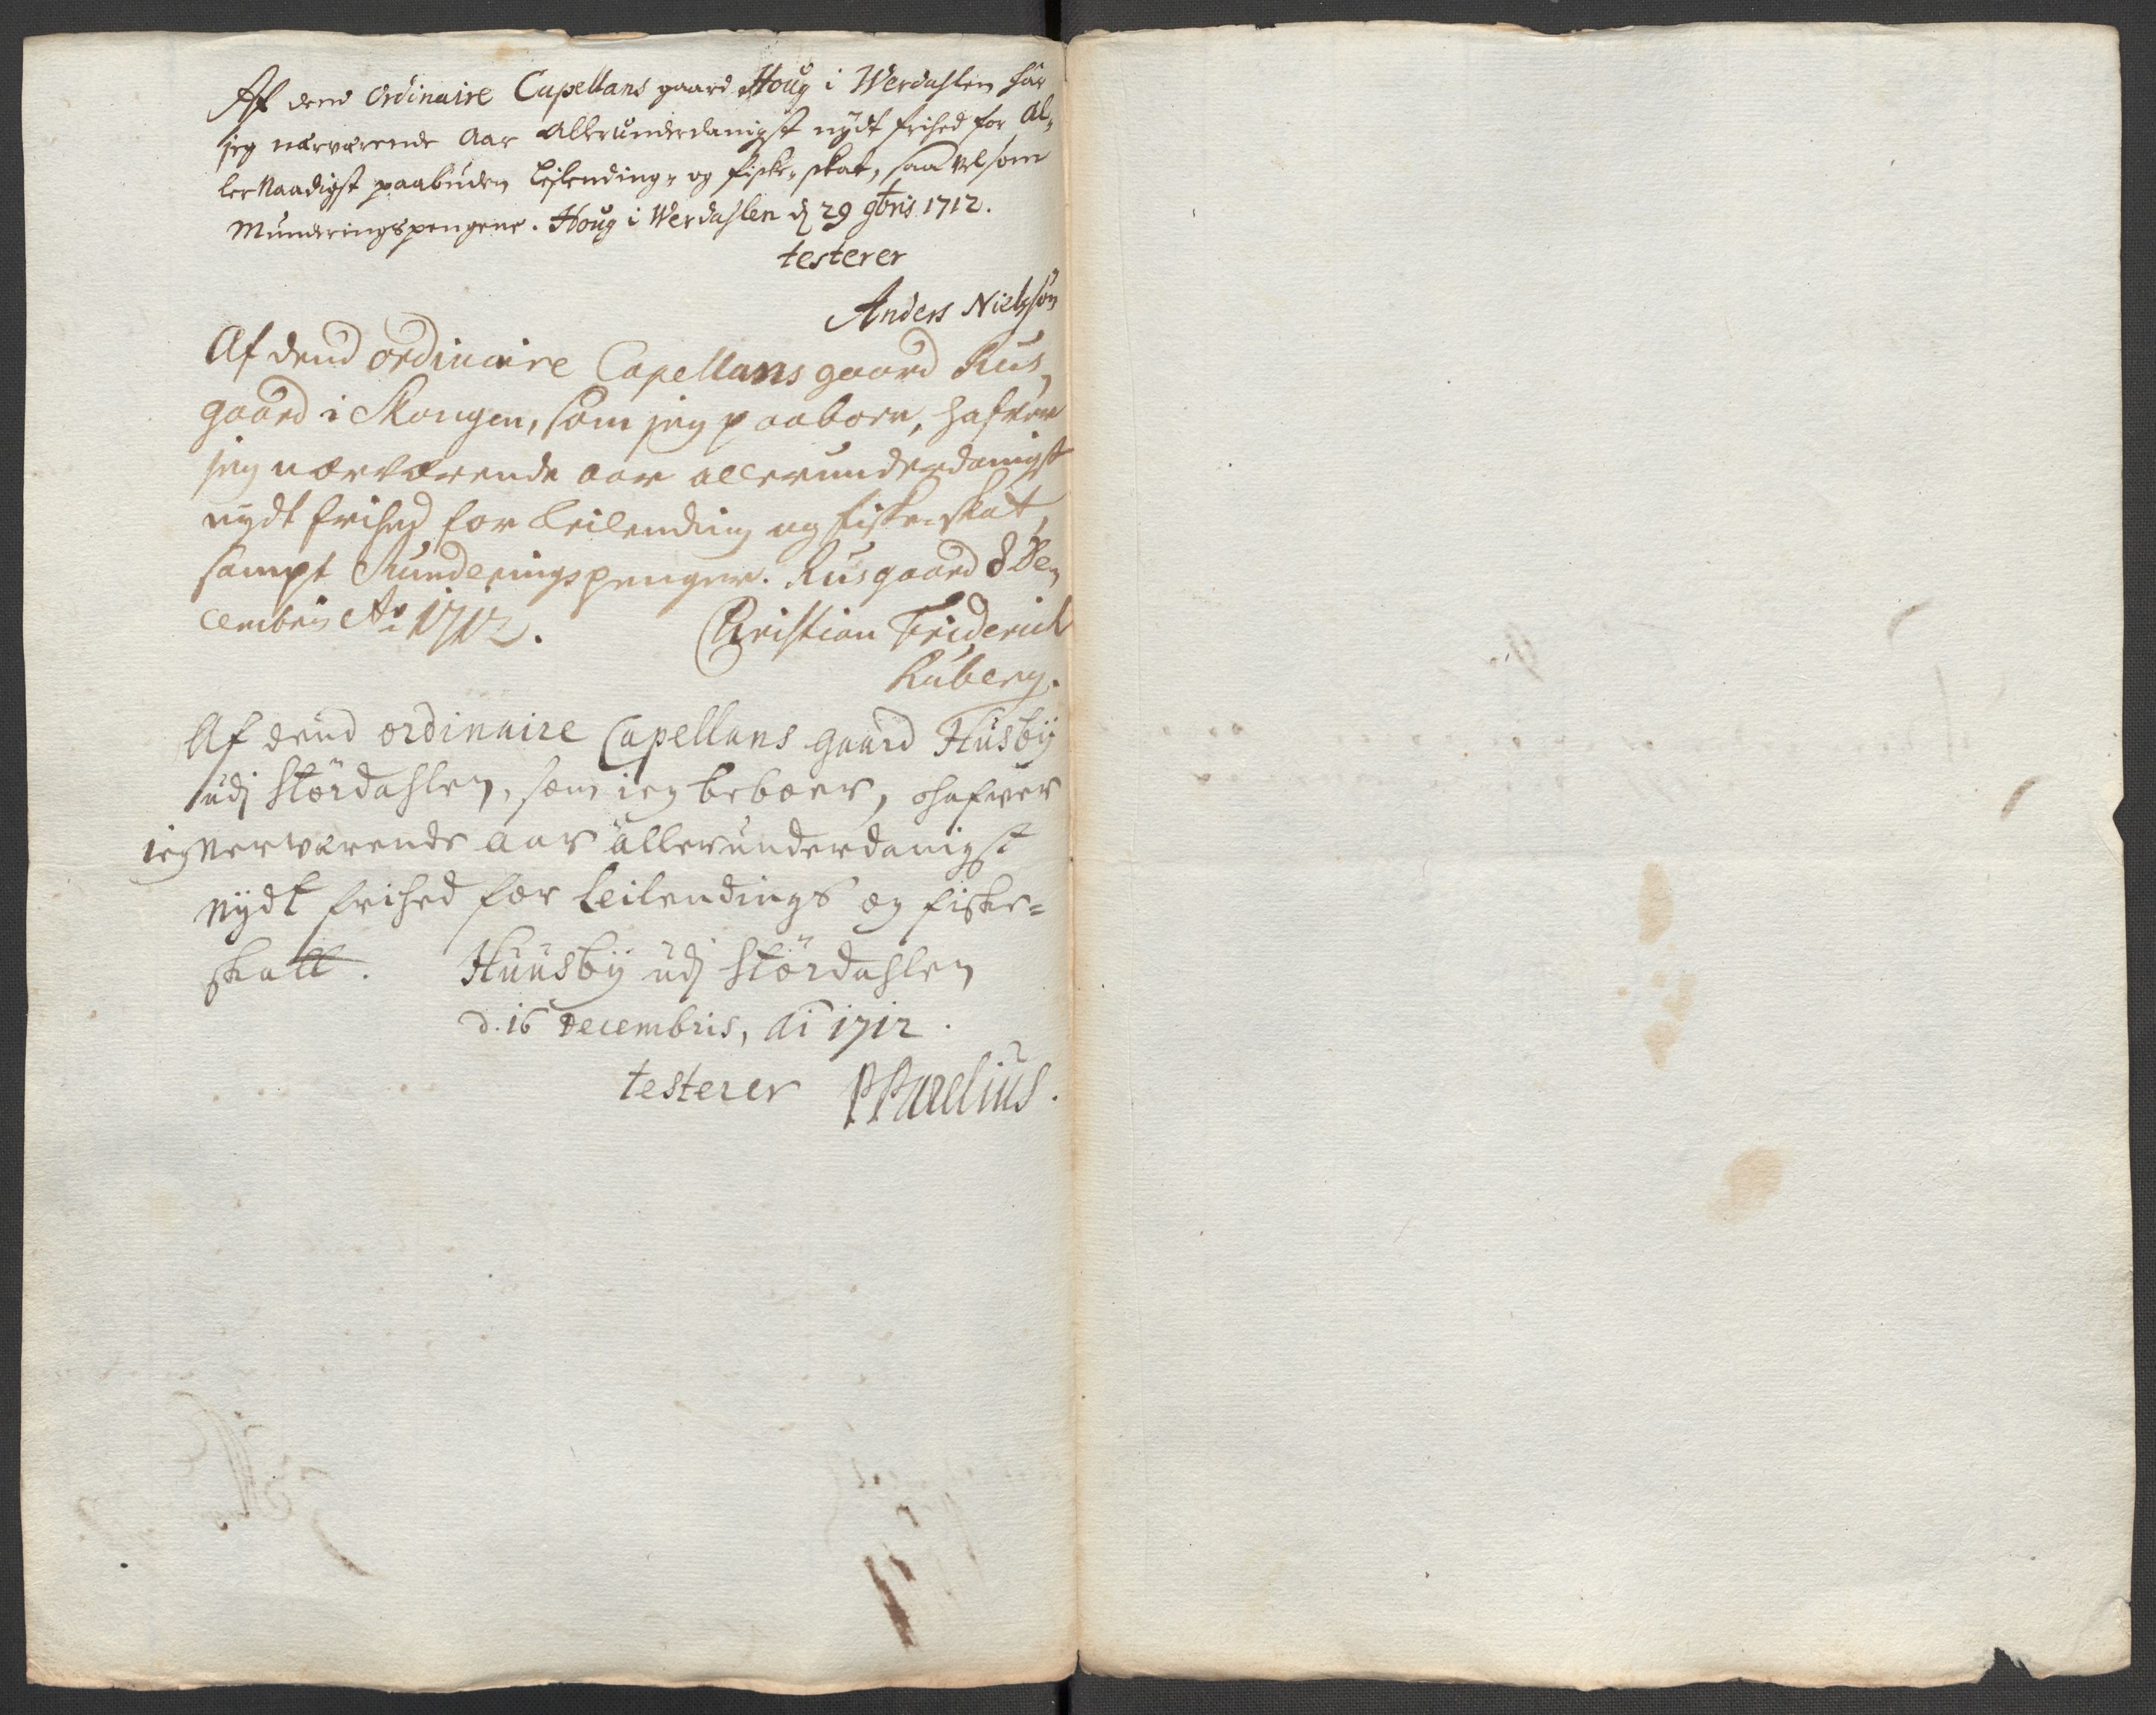 Af dend Ordinaire Capellans gaard Houg i Werdahlen har
jeg nærværende Aar allerunderdanigst nydt frihed for Al-
lernaadigst paabuden Leilending- og fiske-skat, saavelsom
Munderingspengene. Houg i Werdahlen d 29 9bris 1712.
testerer
Anders Nielssøn
Af dend ordinaire Capellans gaard Rus-
gaard i Skougen, som jeg paaboer, hafver
jeg nærværende aar allerunderdanigst
nydt frihed for Leilending og fiske-skat,
sampt Munderingspenger. Rusgaard 8 De-
cembris Ao 1712. Christian Friderick
Ruberg.
Af dend ordinaire Capellans gaard Husbÿ
udj Størdahlen, som ieg beboer, hafver
ieg nerværende aar allerunderdanigst
nÿdt frihed for Leilendings og fiske=
skatt. Huusbÿ udj Størdahlen
d. 16 Decembris, Ai 1712.
testerer PParelius.